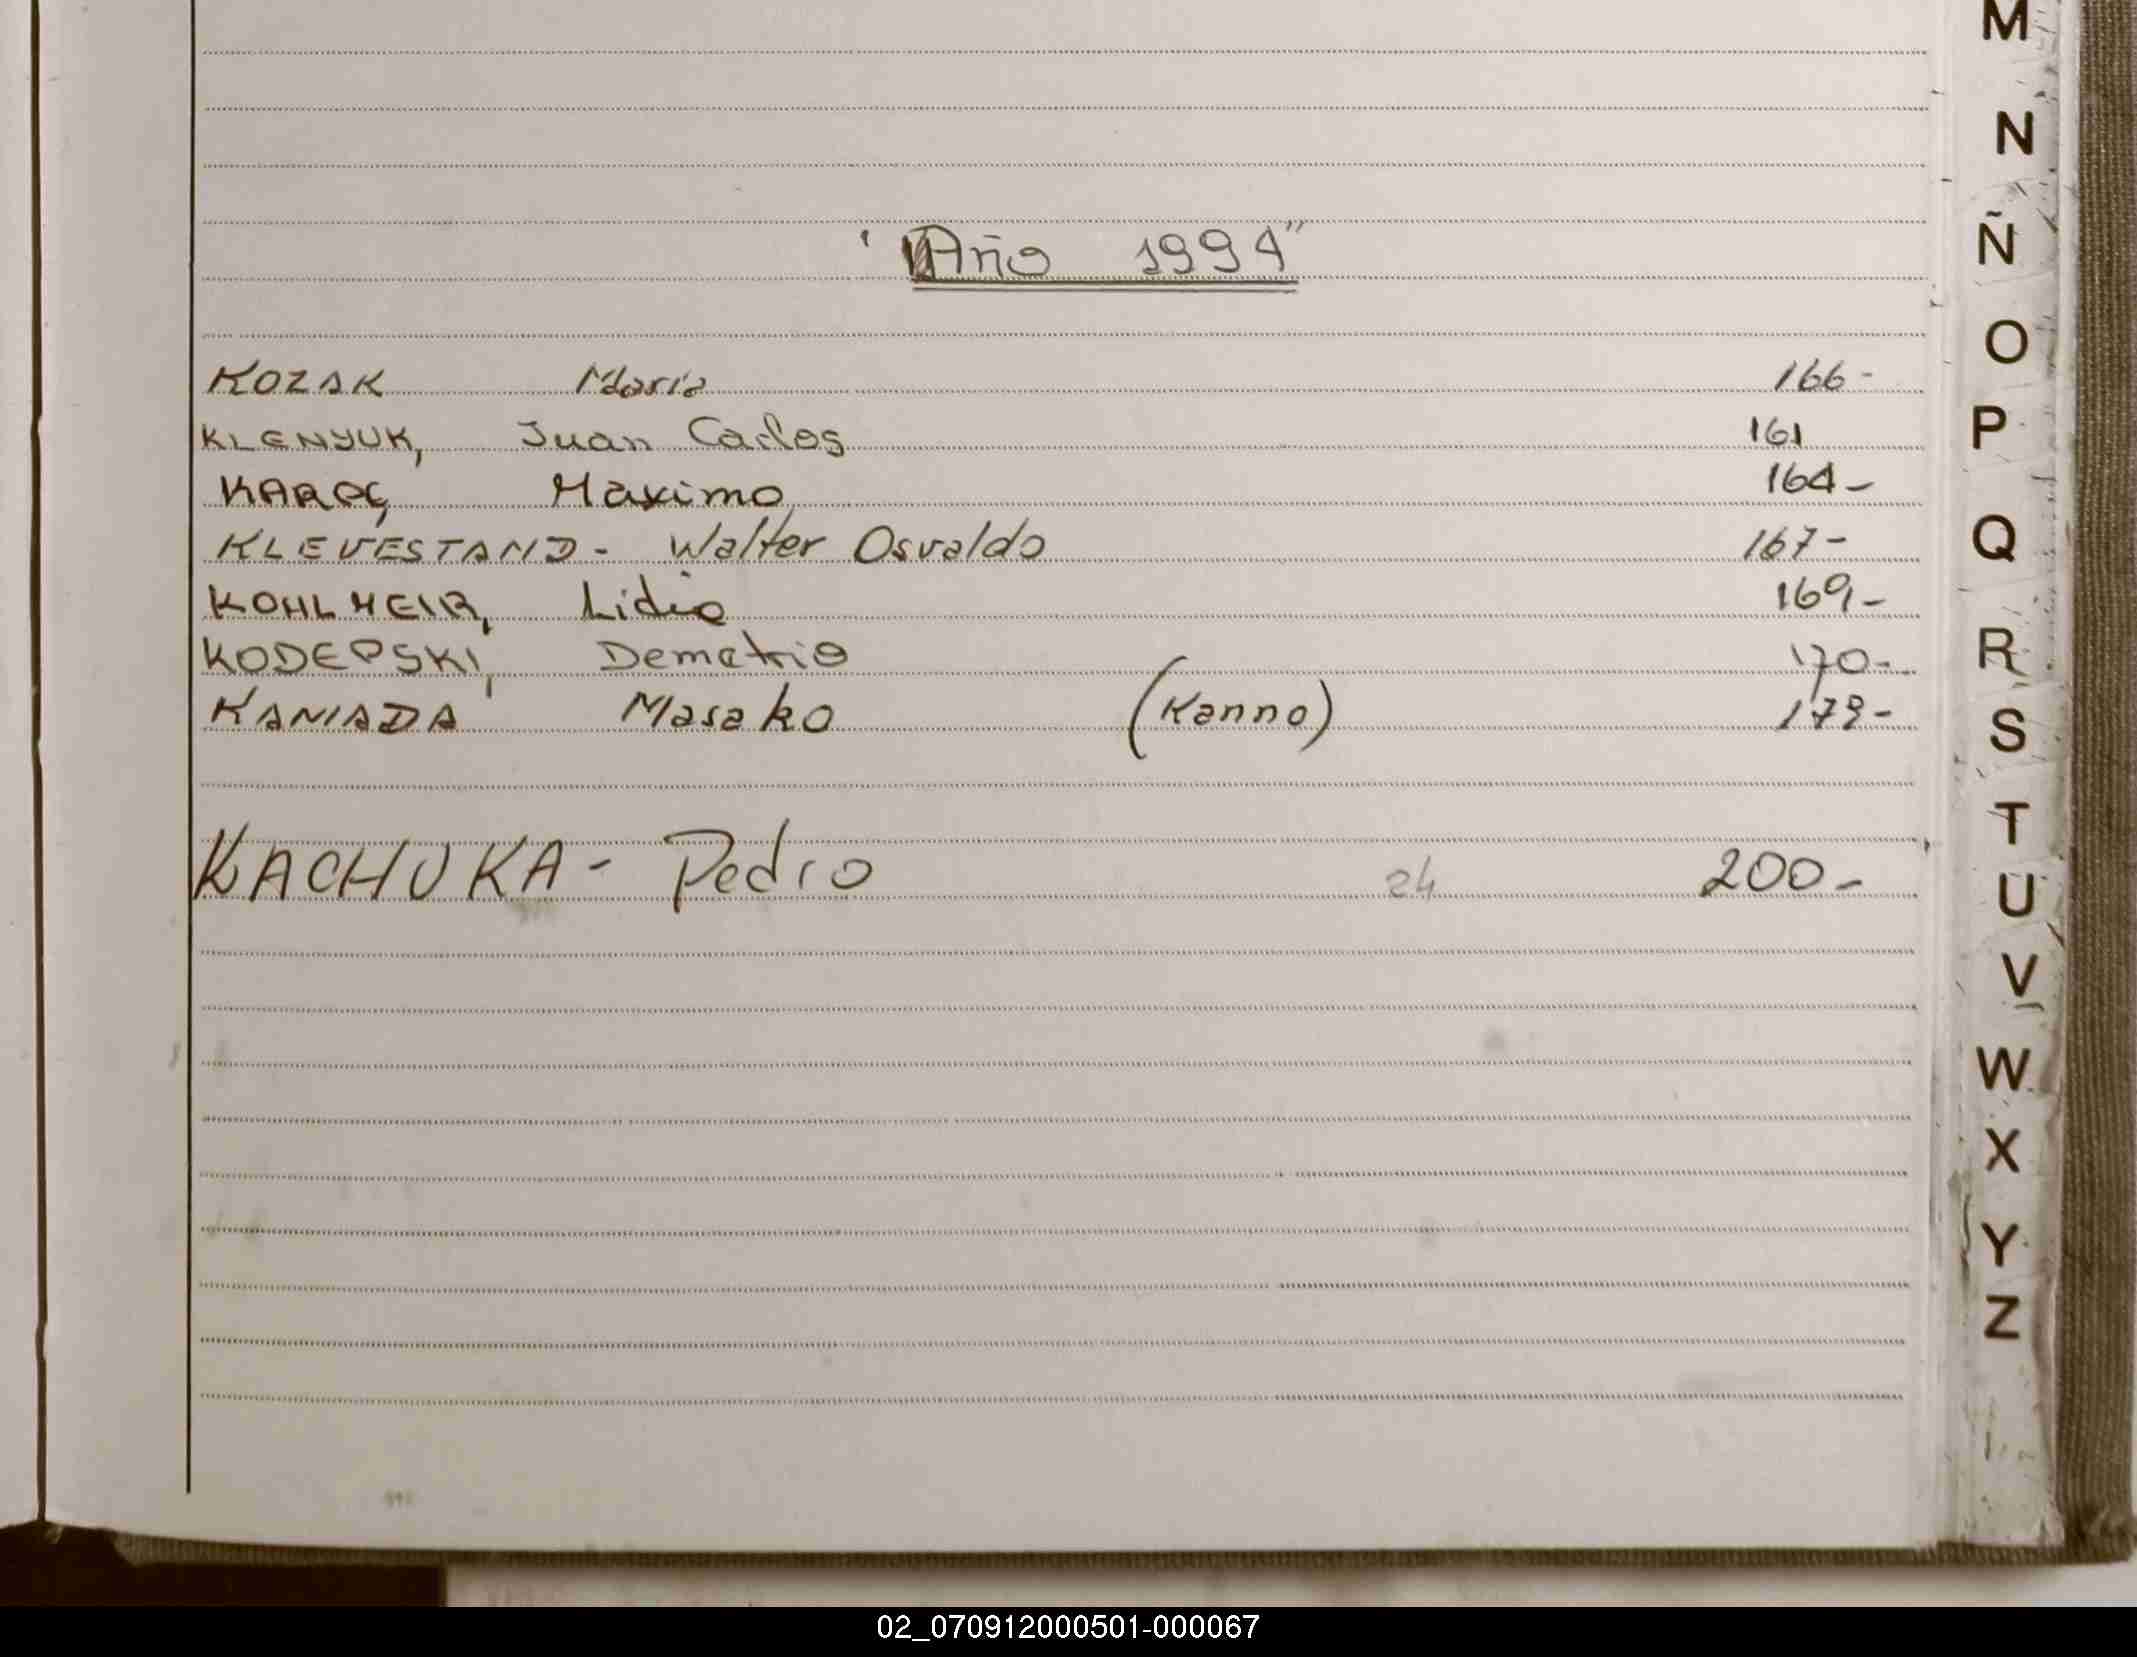 "Año 1994"
KOZAK Maria 166-
KLENYUK, Juan Carlos 161
Maximo 164-
KLEVESTAND- Walter Osvaldo 167-
KOHLMEIR, Lidia 169-
KODEPSKI, Demetrio 170-
KANIADA Masako (Kanno) 179-
KACHUKA- Pedro 24 200-
M
N
Ñ
O
P
Q
R
S
T
U
V
W
X
Y
Z
02_070912000501-000067